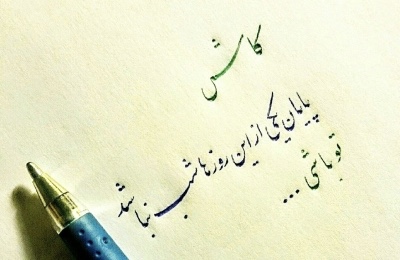 کاش
پایان یکی از این روزها شب نباشد
تو باشی ...